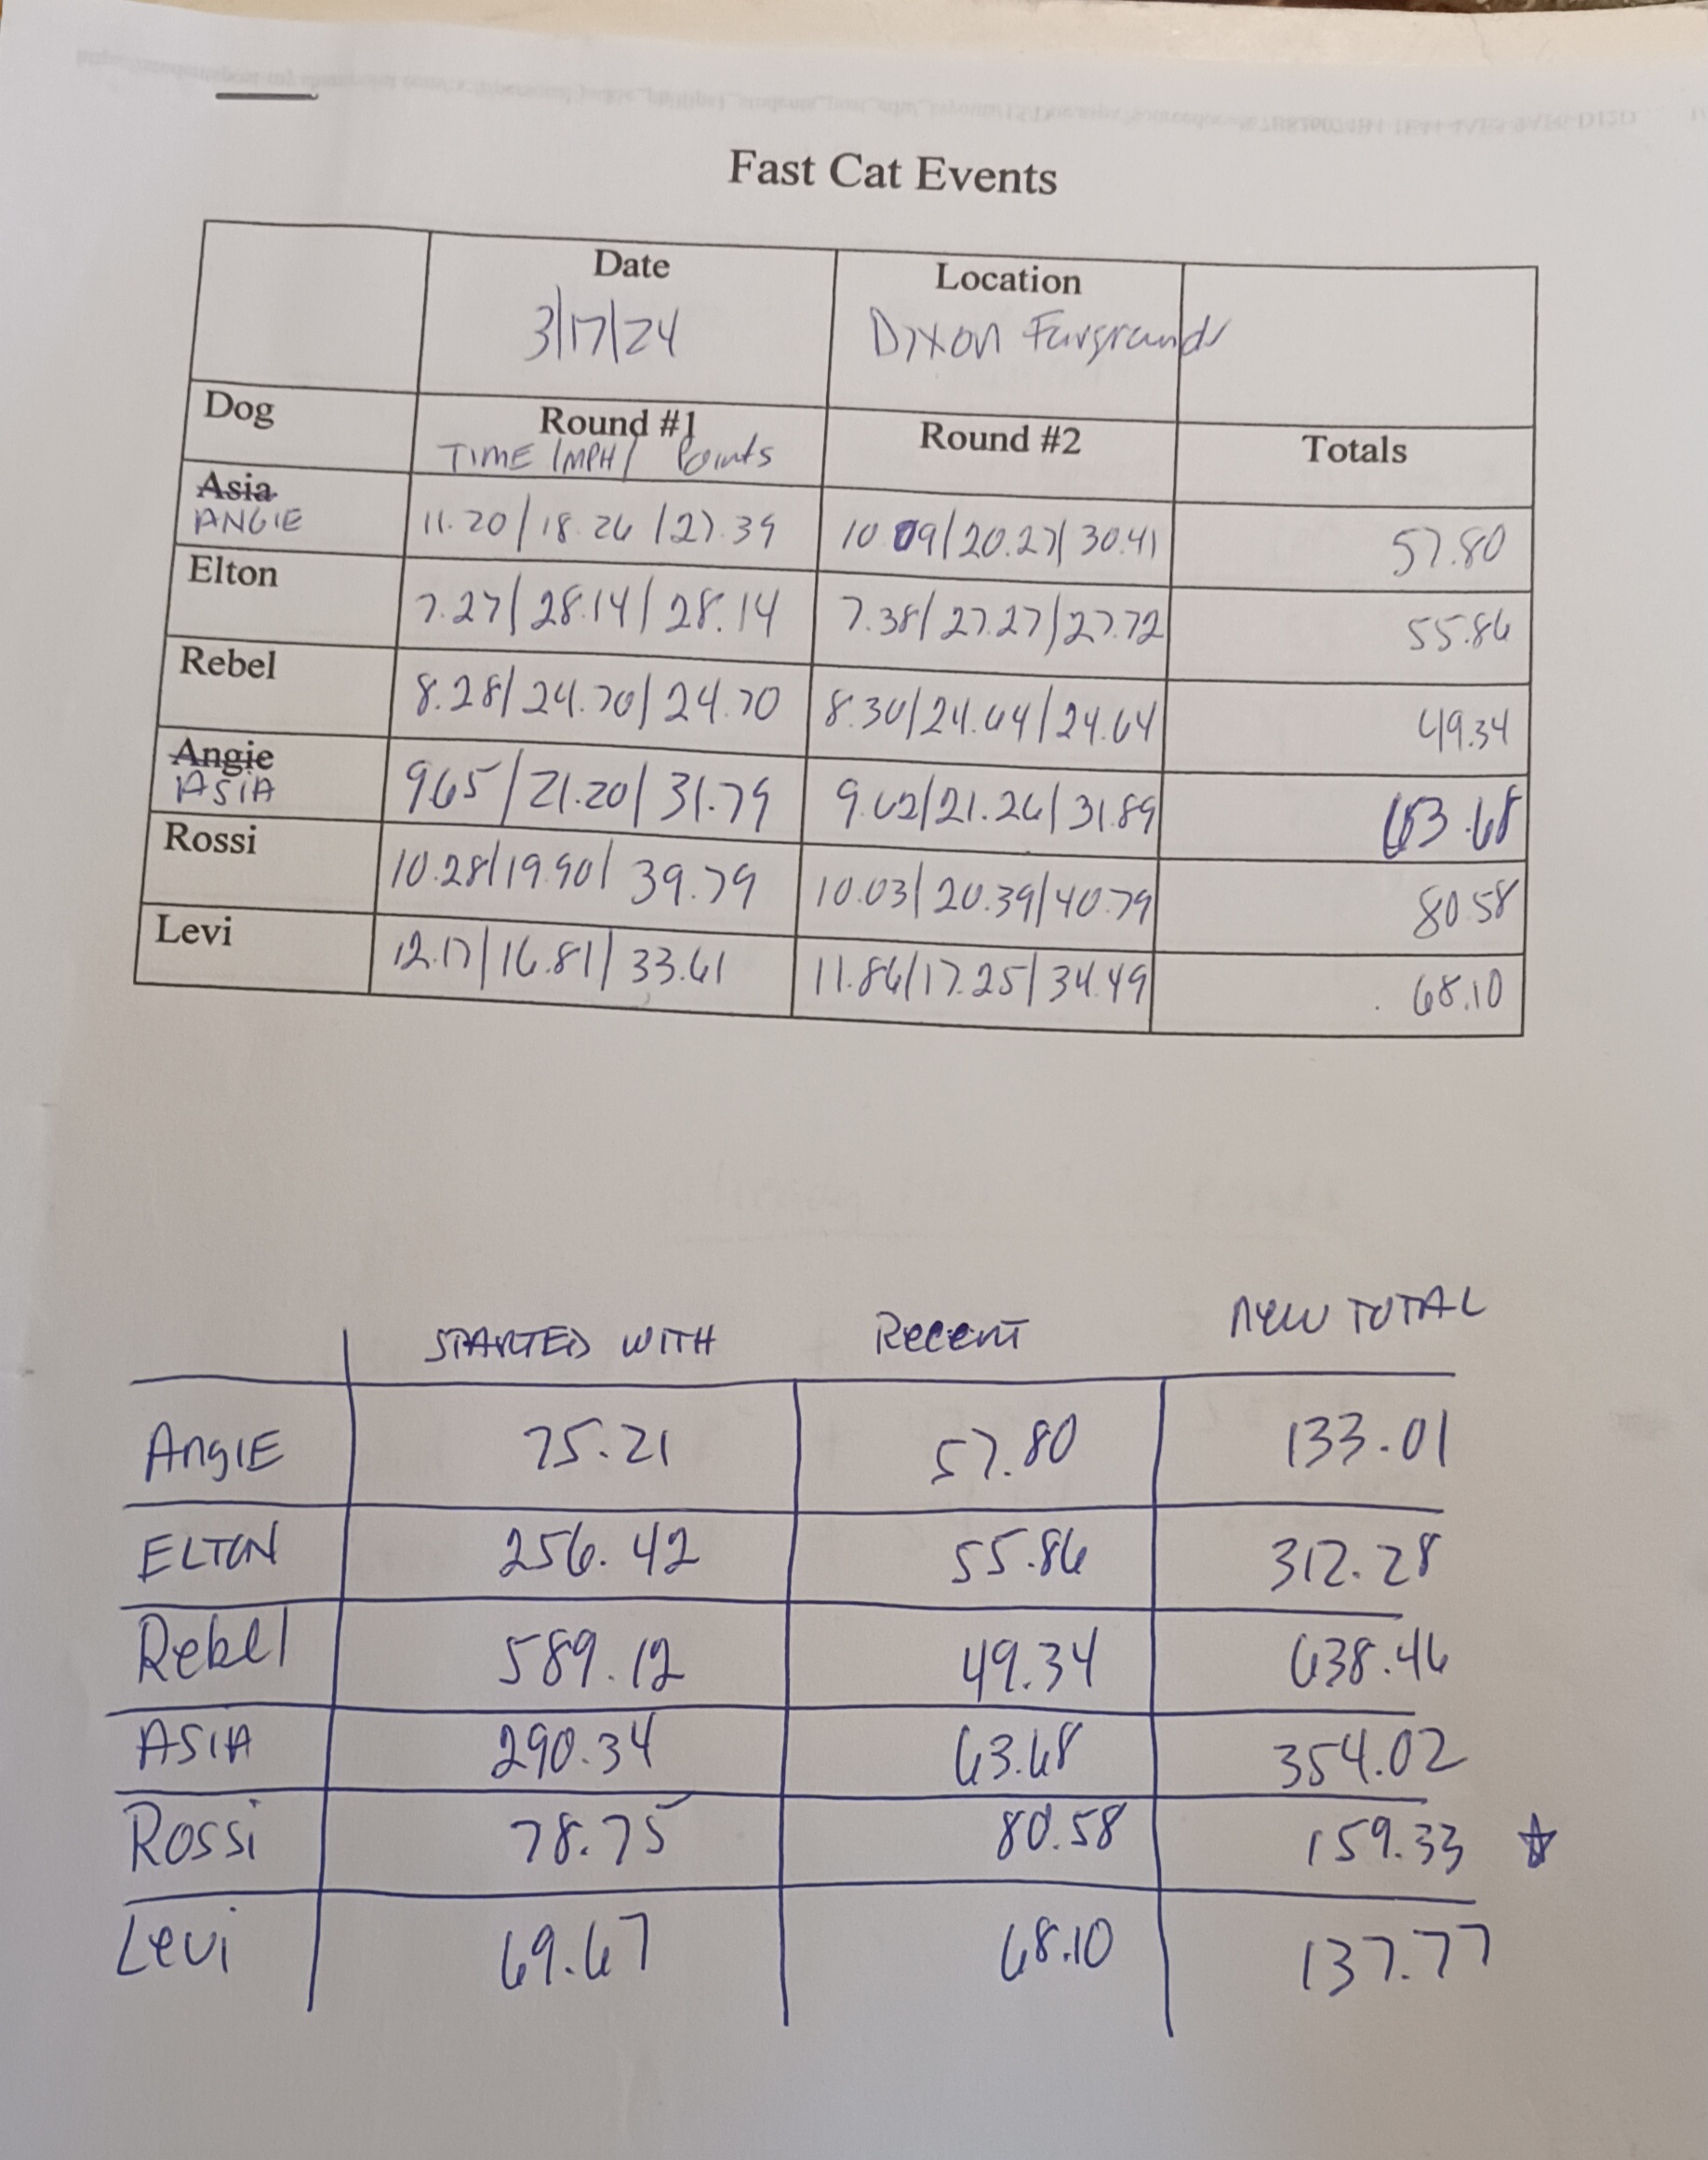 Fast Cat Events
Date Location
3/17/24 Dixon Fairgrounds
Dog Round #1 Round #2 Totals
TIME /MPH/ Points
Asia
ANGIE 11.20/18.26/27.39 10.09/20.27/30.41 57.80
Elton 7.27/28.14/28.14 7.38/27.27/27.72 55.86
Rebel 8.28/24.70/24.70 8.30/24.64/24.64 49.34
Angie
ASIA 9.65/21.20/31.79 9.62/21.26/31.89 63.68
Rossi 10.28/19.90/39.79 10.03/20.39/40.79 80.58
Levi 12.17/16.81/33.61 11.86/17.25/34.49 68.10
STARTED WITH Recent NEW TOTAL
AngIE 75.21 57.80 133.01
ELTON 256.42 55.86 312.28
Rebel 589.12 49.34 638.46
ASIA 290.34 63.68 354.02
Rossi 78.75 80.58 159.33 ☆
Levi 69.67 68.10 137.77